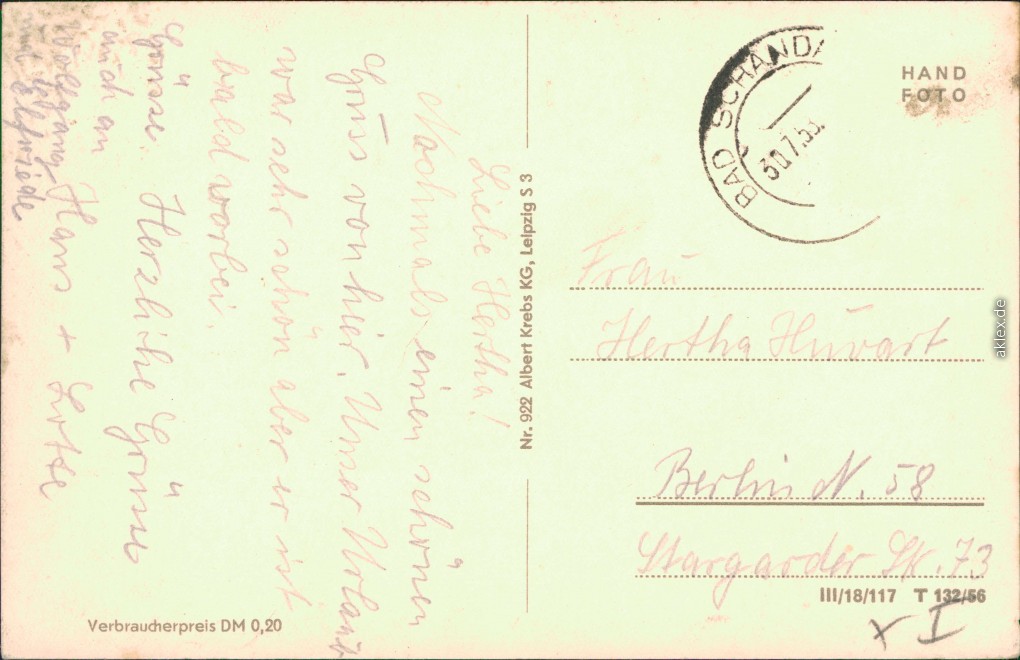 Liebe Hertha!
Nochmals einen schönen
Gruss von hier. Unser Urlaub
war sehr schön aber er ist
bald vorbei.
Herzlihe Grüsse
Hans + Lotte
Grüsse.
auch an
Wolfgang
und Elfriede
Verbraucherpreis DM 0,20
Nr. 922 Albert Krebs KG, Leipzig S 3
BAD SCHANDA
30.7.5
HAND
FOTO
Frau
Hertha Huwart
Berlin N. 58
Stargarder Str. 73
III/18/117 T 132/56
x I
aklex.de